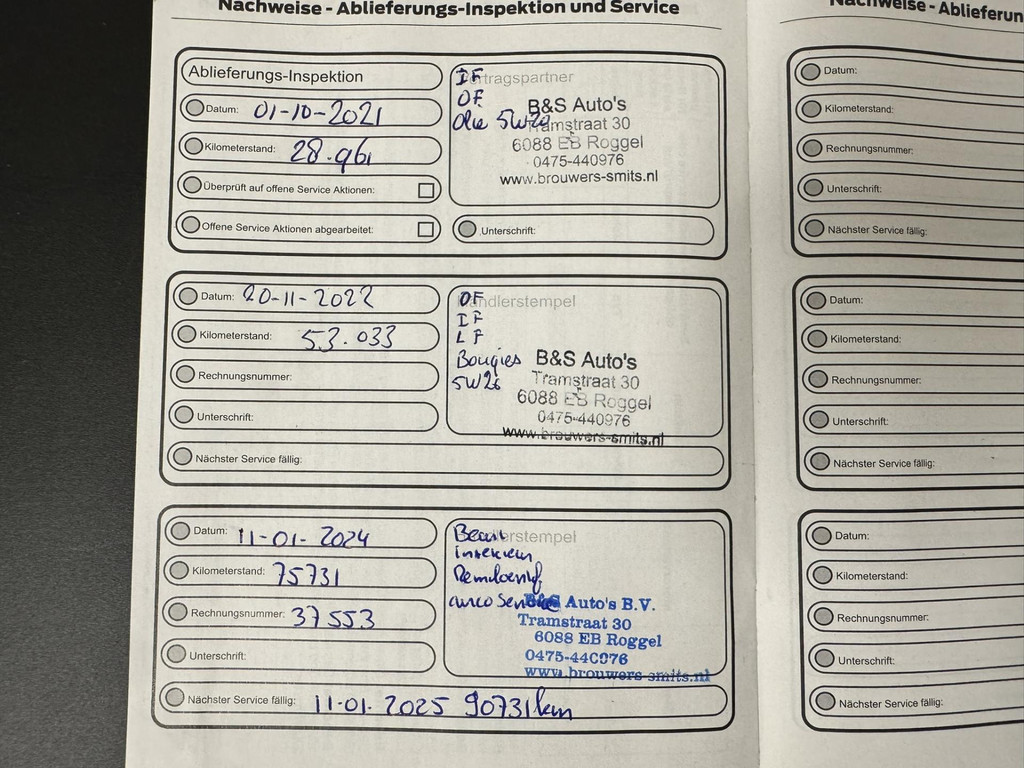 Nachweise - Ablieferungs-Inspektion und Service
Ablieferungs-Inspektion
Datum: 01-10-2021
Kilometerstand: 28.961
Überprüft auf offene Service Aktionen:
Offene Service Aktionen abgearbeitet:
IF
OF
Olie 5W20
B&S Auto's
Tramstraat 30
6088 EB Roggel
0475-440976
www.brouwers-smits.nl
Unterschrift:
Datum: 20-11-2022
Kilometerstand: 53.033
Rechnungsnummer:
Unterschrift:
Nächster Service fällig:
OF
IF
LF
Bougies
B&S Auto's
Tramstraat 30
6088 EB Roggel
0475-440976
www.brouwers-smits.nl
Datum: 11-01-2024
Kilometerstand: 75731
Rechnungsnummer: 37553
Unterschrift:
Nächster Service fällig: 11-01-2025 90731km
Beurt
interieur
B&S Auto's B.V.
Tramstraat 30
6088 EB Roggel
0475-440976
www.brouwers-smits.nl
Nachweise - Ablieferun
Datum:
Kilometerstand:
Rechnungsnummer:
Unterschrift:
Nächster Service fällig:
Datum:
Kilometerstand:
Rechnungsnummer:
Unterschrift:
Nächster Service fällig:
Datum:
Kilometerstand:
Rechnungsnummer:
Unterschrift:
Nächster Service fällig: